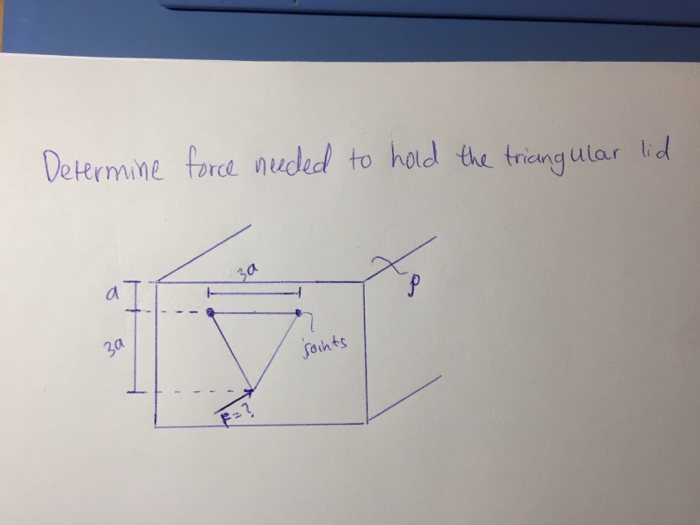 Determine force needed to hold the triangular lid
3a
a
ρ
3a
joints
F=?